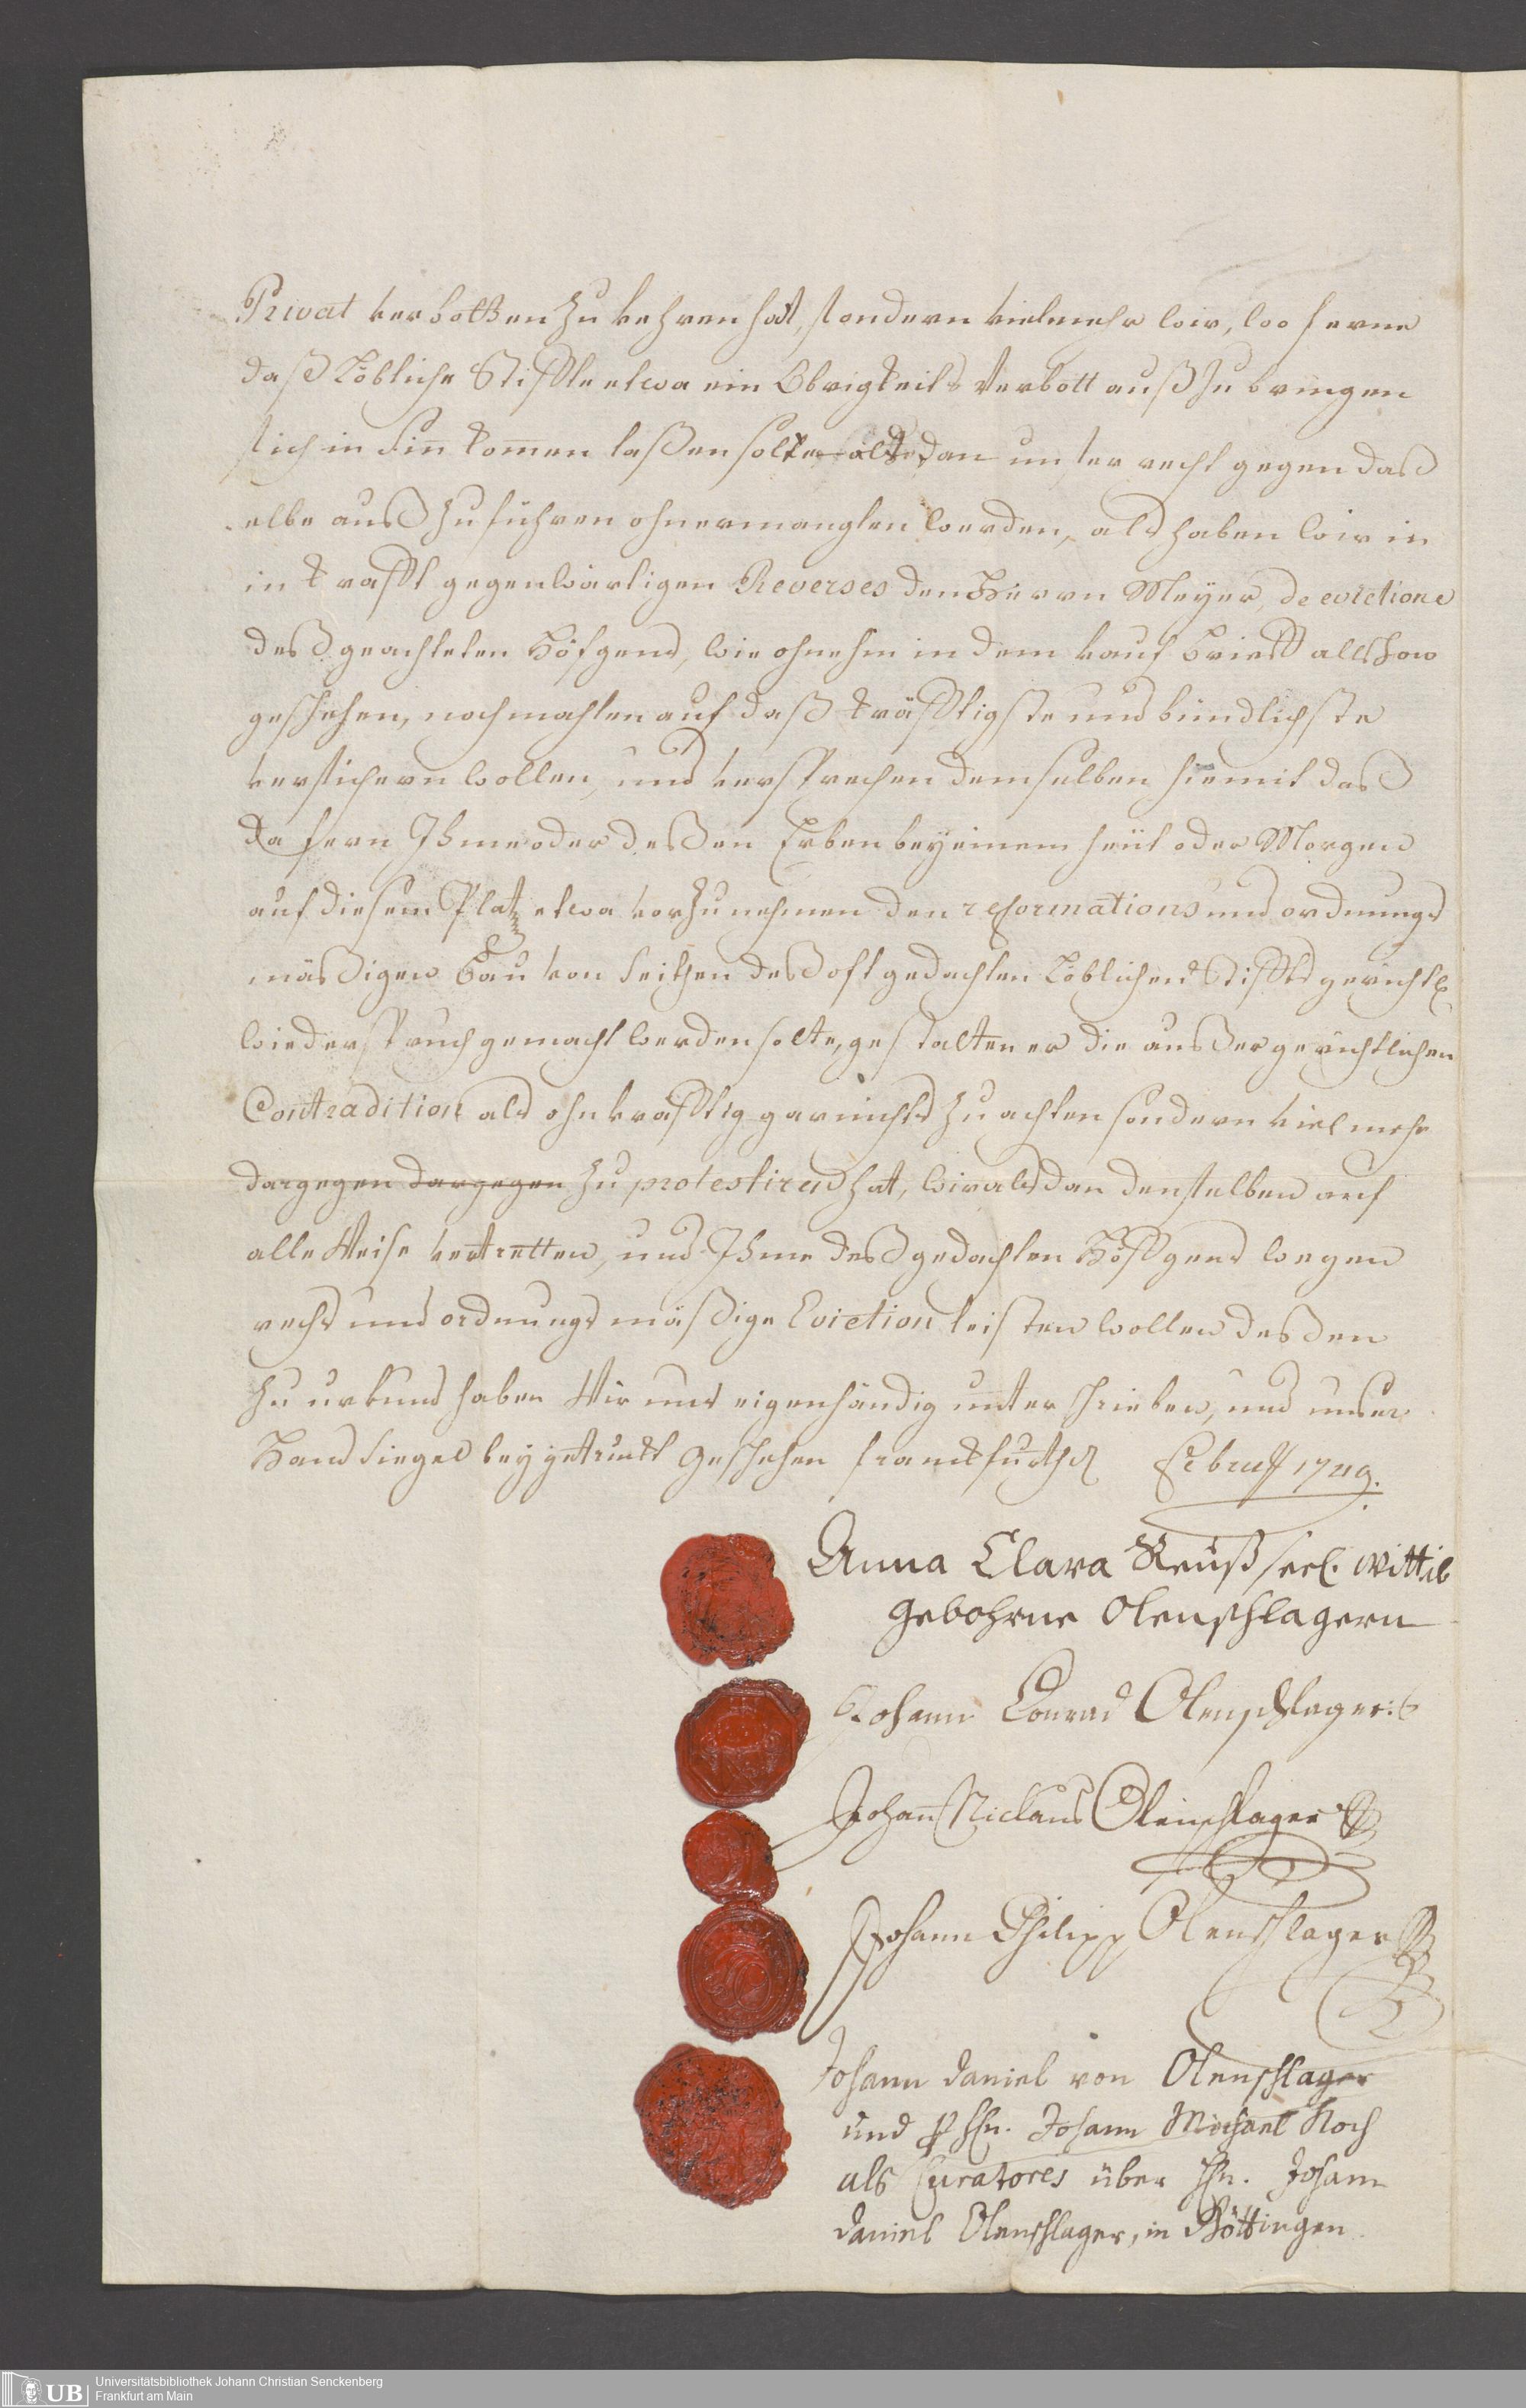 Privat verbotten zu kehren hat, sondern vielmehr wir, wo ferne
daß Löbliche Stiffte etwa ein Obrigkeitl. Verbott außzubringen
sich in Sin̄ kom̄en laßen solte alß dan unser recht gegen daß
elbe außzuführen ohnermanglen werden, als haben wir in
in krafft gegenwärtigen Reverses den Herrn Meyer, de evictione
deß geachteten Höfgens, wie ohnehin in dem kauf brieff allschon
geschehen, nochmahlen auf daß kräfftigste und bündlichste
versichern wollen, und versprechen demselben hiemit daß
da fern Ihme oder deßen Erben bey einem heüt oder Morgen
auf diesem Platz etwa vorzunehmen den reformations und ordnungs
mäßigen Bau von seithen deß oft gedachten Löblichen Stiffts gerichtl.
wiederspruch gemacht werden solte, gestalten er die außergerichtlichen
Contradition als ohnkräfftig gar nichts zu achten sondern viel mehr
dargegen dargegen zu protestiren hat, wir als dan denselben auf
alle Weise vertretten, und Ihme deß gedachten Höffgens wegen
rechts und ordnungs mäßige Eviction leisten wollen deßen
zu urkund haben Wir uns eigenhändig unterschrieben, und unser
Hand Siegel beygetruckt geschehen franckfurth d. Febru 1749.
Anna Clara Reuß seel. Wittib
gebohrne Olenschlagern
Johann Conrad Olenschlager
Johan̄ Niclaus Olenschlager
Johann Philipp Olenschlager
Johann Daniel von Olenschlager
und p Hn. Johann Michael Koch
als Curatores über Hn. Johann
Daniel Olenschlager, in Göttingen.
UB Universitätsbibliothek Johann Christian Senckenberg
Frankfurt am Main